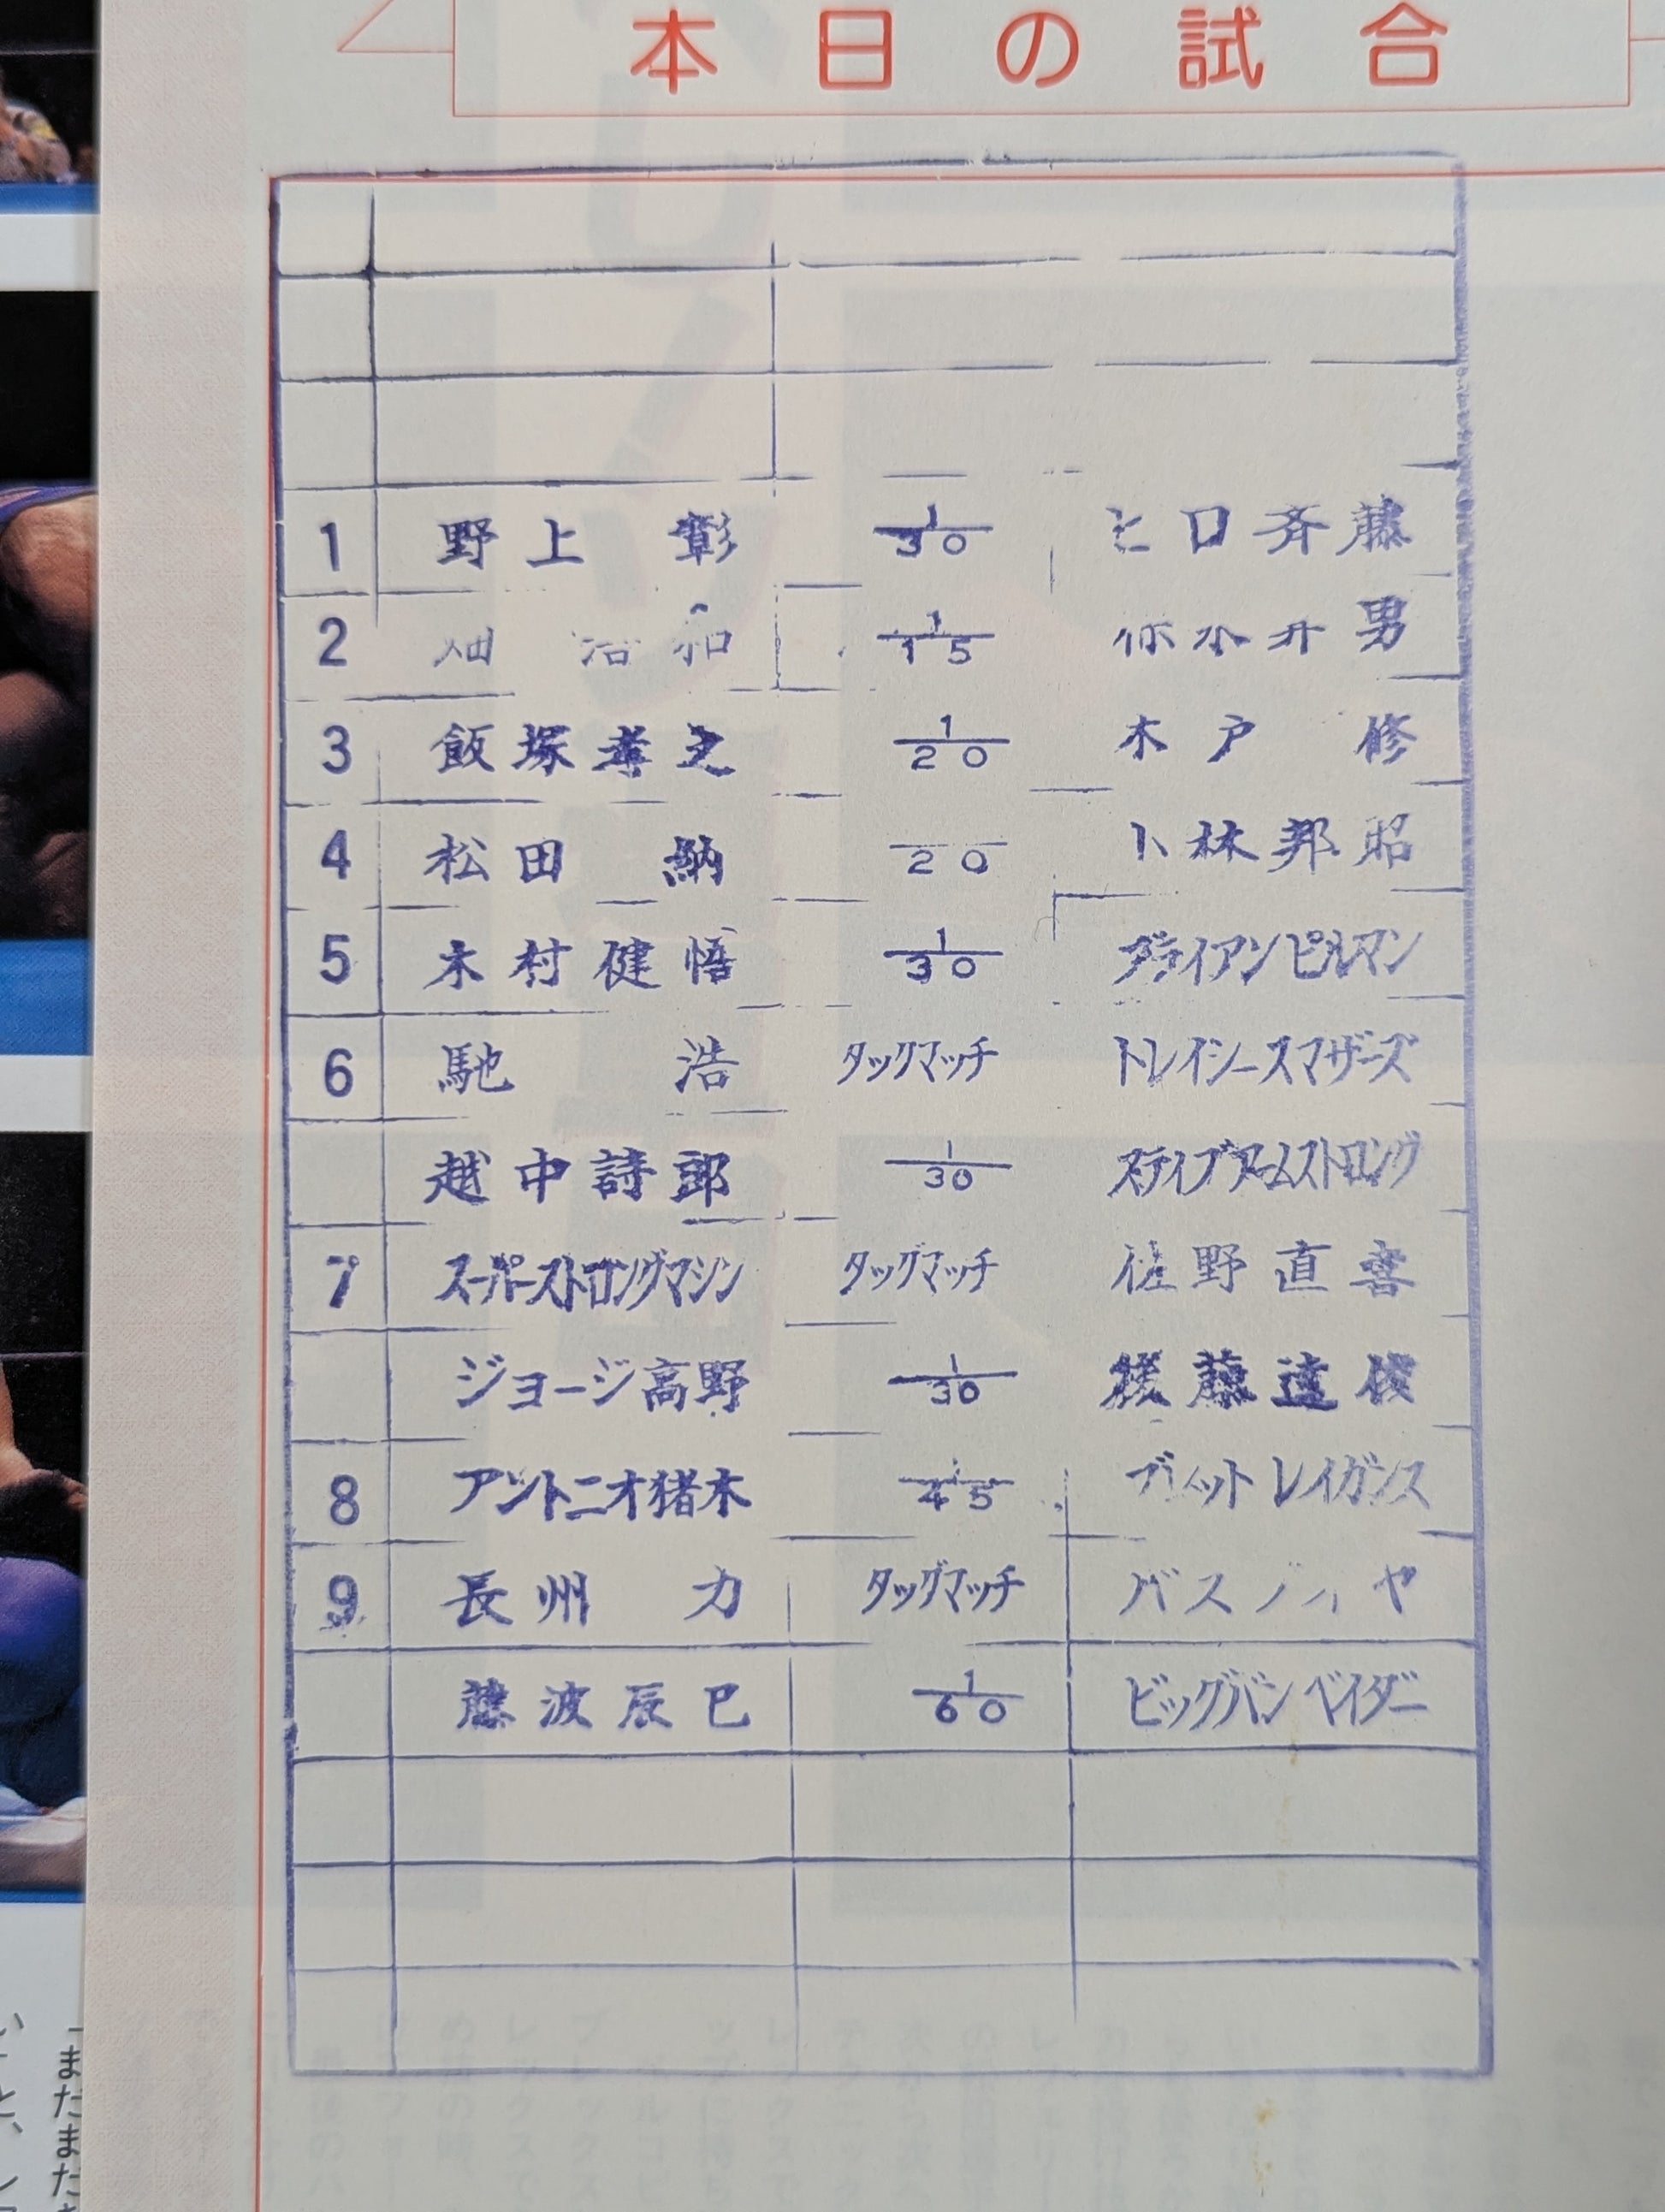 本日の試合
1 野上 彰 1/30 ヒロ斉藤
2 畑 浩和 1/15 男
3 飯塚孝之 1/20 木戸 修
4 松田 納 20 小林邦昭
5 木村健悟 1/30 ブライアンピルマン
6 馳 浩 タッグマッチ トレイシースマザーズ
越中詩郎 1/30 スティブアームストロング
7 スーパーストロングマシン タッグマッチ 佐野直喜
ジョージ高野 1/30 後藤達俊
8 アントニオ猪木 1/45 ブラットレイガンス
9 長州 力 タッグマッチ
藤波辰巳 1/60 ビッグバンベイダー